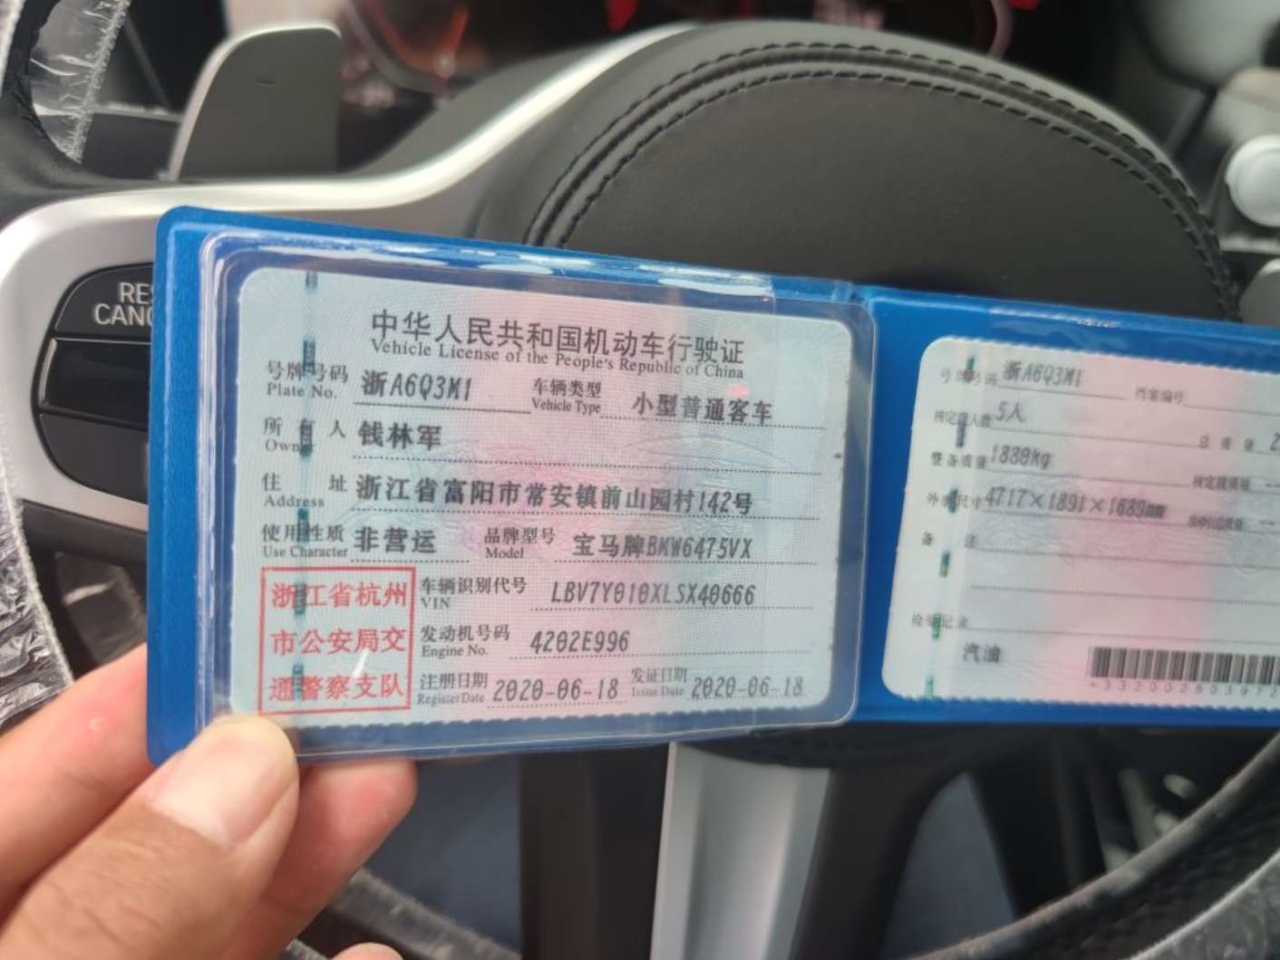 RES
CANC
中华人民共和国机动车行驶证
Vehicle License of the People's Republic of China
号牌号码 浙A6Q3M1 车辆类型 小型普通客车
Plate No. Vehicle Type
所有人 钱林军
Owner
住址 浙江省富阳市常安镇前山园村142号
Address
使用性质 非营运 品牌型号 宝马牌BMW6475VX
Use Character Model
浙江省杭州
市公安局交
通警察支队
车辆识别代号 LBV7Y010XLSX40666
VIN
发动机号码 4202E996
Engine No.
注册日期 2020-06-18 发证日期 2020-06-18
Register Date Issue Date
号牌号码 浙A6Q3M1 档案编号
核定载人数 5人 总质量
整备质量 1880kg 核定载质量 --
外廓尺寸 4717×1891×1689mm --
备注
检验记录
汽油